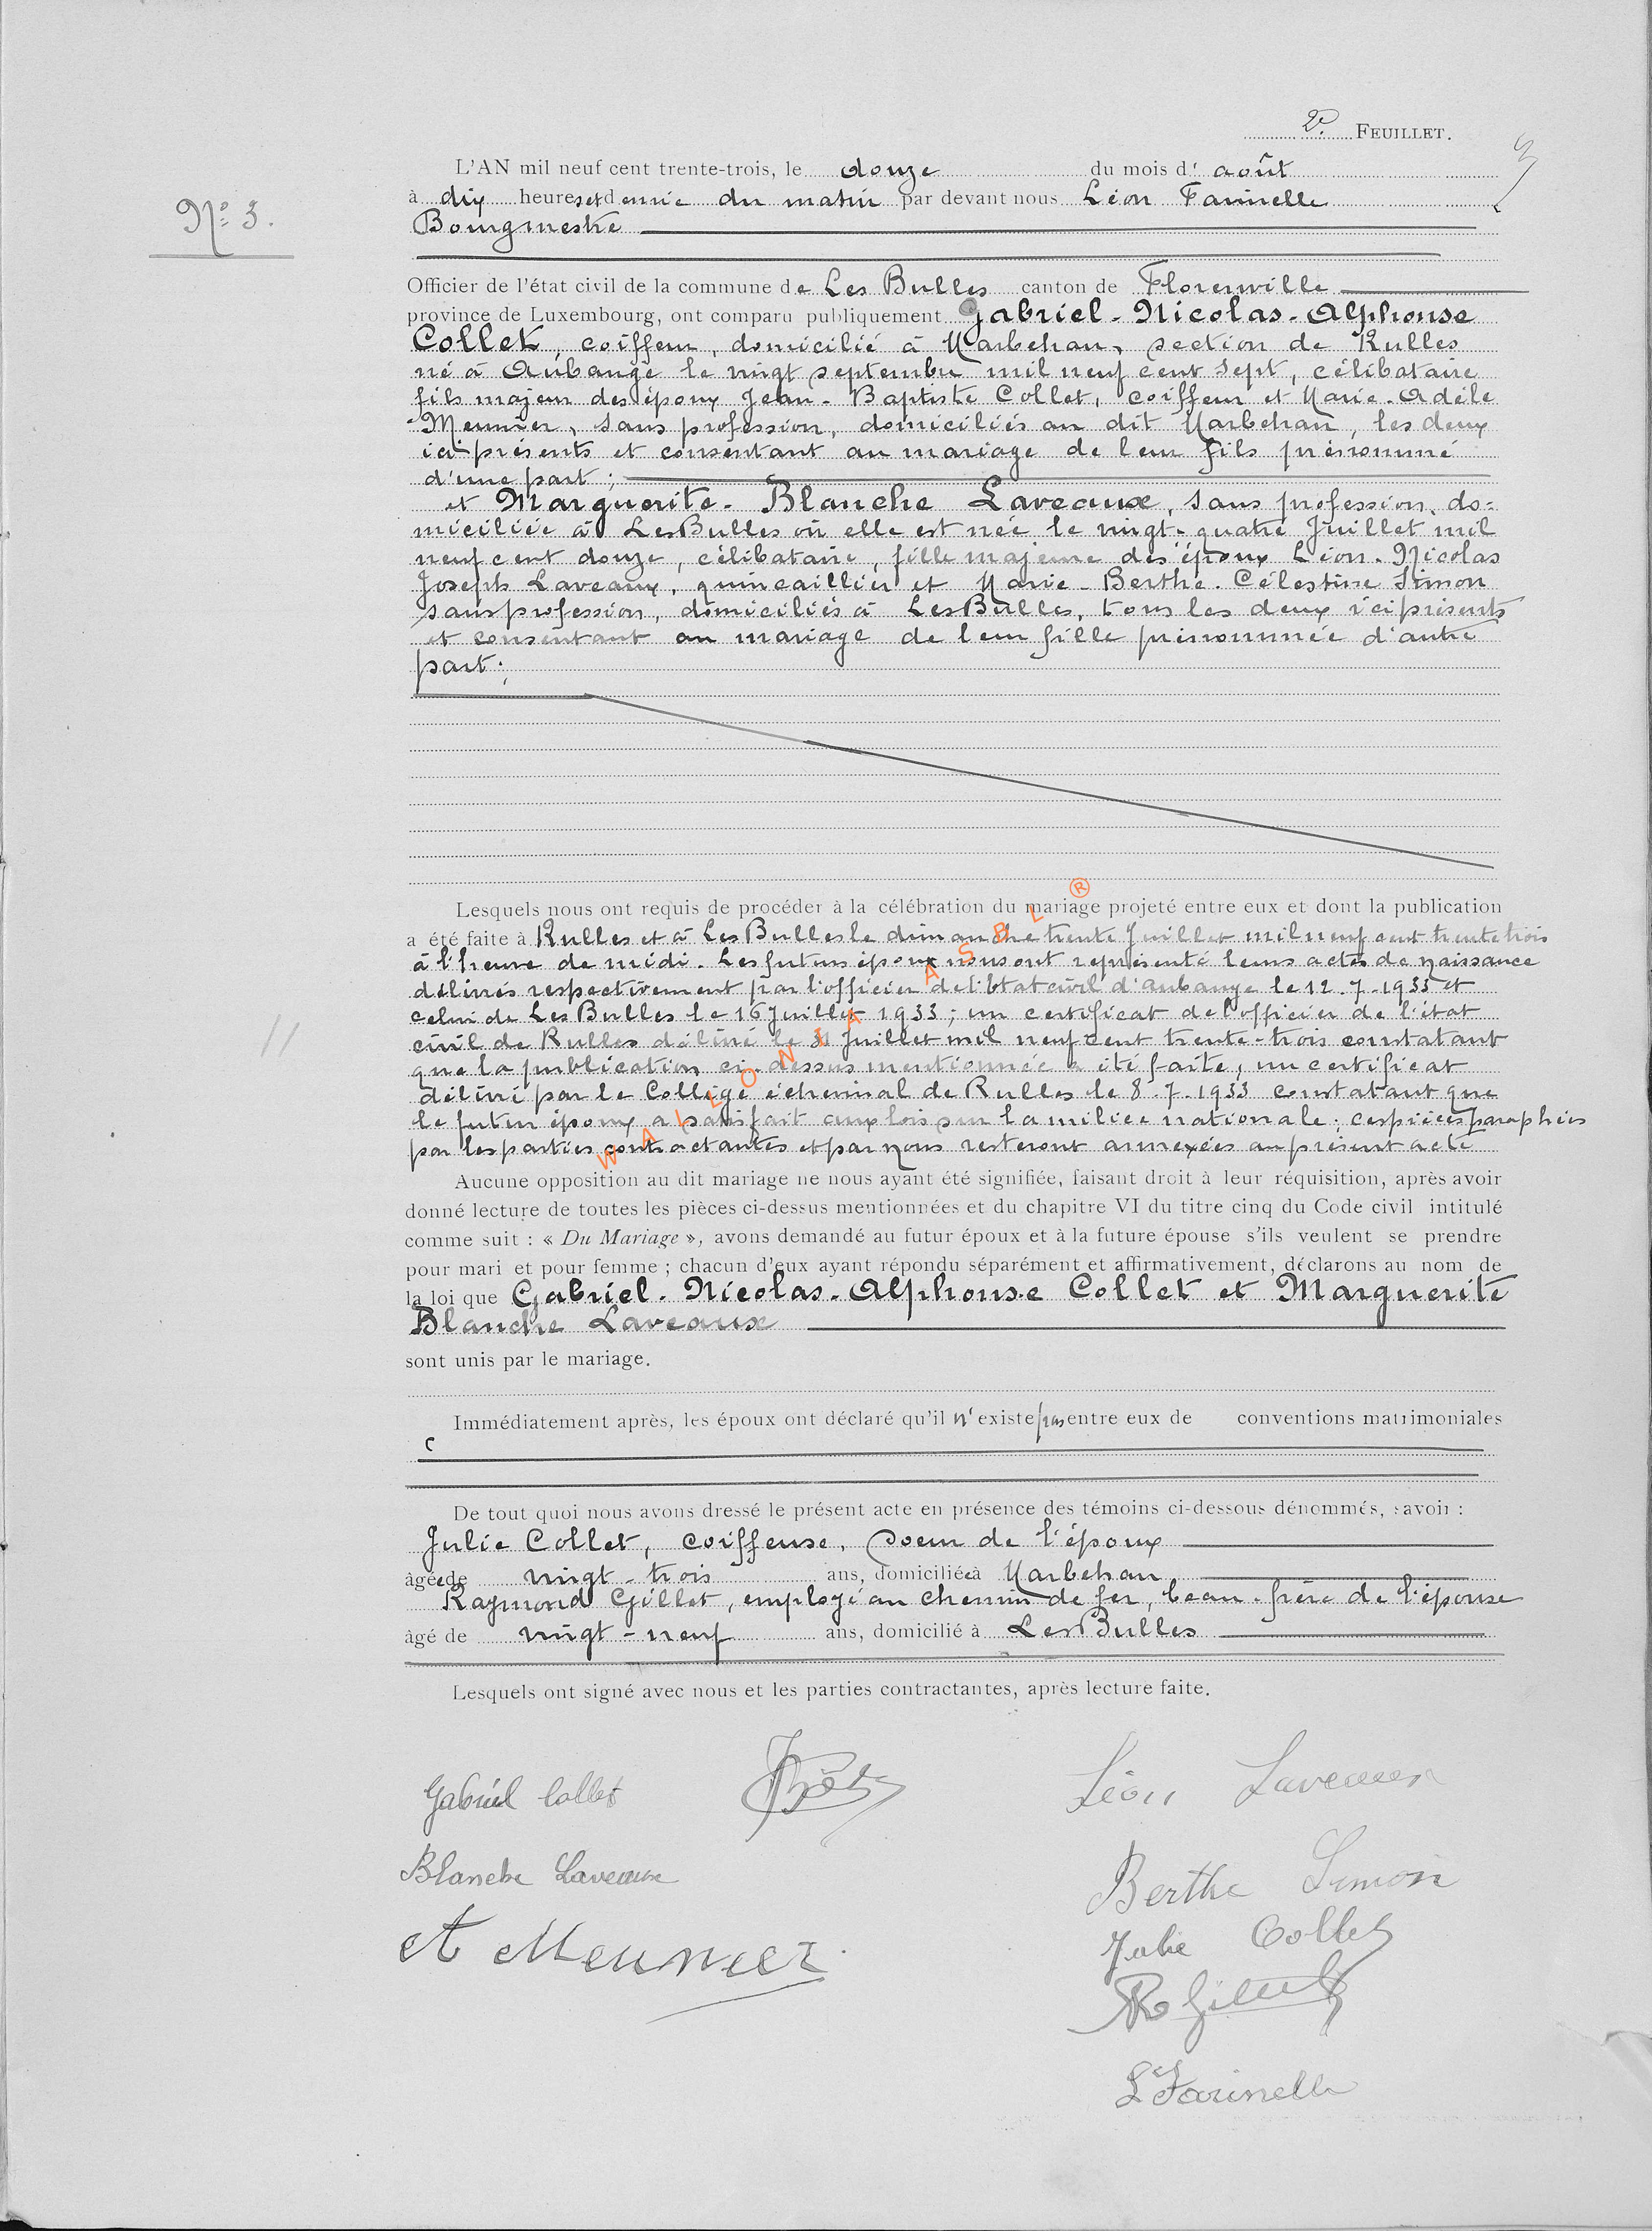 2e FEUILLET.
3
L'AN mil neuf cent trente-trois, le douze du mois d' août
à dix heures et demie du matin par devant nous Léon Farinelle
N° 3.
Bourgmestre
Officier de l'état civil de la commune de Les Bulles canton de Florenville
province de Luxembourg, ont comparu publiquement Gabriel-Nicolas-Alphonse
Collet, coiffeur, domicilié à Marbehan, section de Rulles
né à Aubange le vingt septembre mil neuf cent sept, célibataire
fils majeur des époux Jean-Baptiste Collet, coiffeur et Marie-Adèle
Meunier, sans profession, domiciliés au dit Marbehan, les deux
ici présents et consentant au mariage de leur fils prénommé
d'une part;
et Marguerite-Blanche Laveaux, sans profession, do=
miciliée à Les Bulles où elle est née le vingt-quatre Juillet mil
neuf cent douze, célibataire, fille majeure des époux Léon-Nicolas
Joseph Laveaux, quincaillier et Marie-Berthe-Célestine Simon
sans profession, domiciliés à Les Bulles, tous les deux ici présents
et consentant au mariage de leur fille prénommée d'autre
part;
Lesquels nous ont requis de procéder à la célébration du mariage projeté entre eux et dont la publication
a été faite à Rulles et à Les Bulles le dimanche trente Juillet mil neuf cent trente trois
à l'heure de midi. Les futurs époux nous ont représenté leurs actes de naissance
délivrés respectivement par l'officier de l'Etat civil d'Aubange le 12-7-1933 et
celui de Les Bulles le 16 Juillet 1933; un certificat de l'officier de l'état
civil de Rulles délivré le 31 Juillet mil neuf cent trente-trois constatant
que la publication ci-dessus mentionnée a été faite, un certificat
délivré par le Collège échevinal de Rulles le 8-7-1933 constatant que
le futur époux a satisfait aux lois sur la milice nationale; ces pièces paraphées
par les parties contractantes et par nous resteront annexées au présent acte
WALLONIA ASBL ®
Aucune opposition au dit mariage ne nous ayant été signifiée, faisant droit à leur réquisition, après avoir
donné lecture de toutes les pièces ci-dessus mentionnées et du chapitre VI du titre cinq du Code civil intitulé
comme suit : « Du Mariage », avons demandé au futur époux et à la future épouse s'ils veulent se prendre
pour mari et pour femme ; chacun d'eux ayant répondu séparément et affirmativement, déclarons au nom de
la loi que Gabriel-Nicolas-Alphonse Collet et Marguerite
Blanche Laveaux
sont unis par le mariage.
Immédiatement après, les époux ont déclaré qu'il n'existe pas entre eux de conventions matrimoniales
De tout quoi nous avons dressé le présent acte en présence des témoins ci-dessous dénommés, savoir :
Julie Collet, coiffeuse, soeur de l'époux
âgée de vingt-trois ans, domiciliée à Marbehan
Raymond Gillet, employé au chemin de fer, beau-frère de l'épouse
âgé de vingt-neuf ans, domicilié à Les Bulles
Lesquels ont signé avec nous et les parties contractantes, après lecture faite.
Gabriel Collet
Léon Laveaux
Blanche Laveaux
Berthe Simon
A Meunier
Julie Collet
R Gillet
L Farinelle